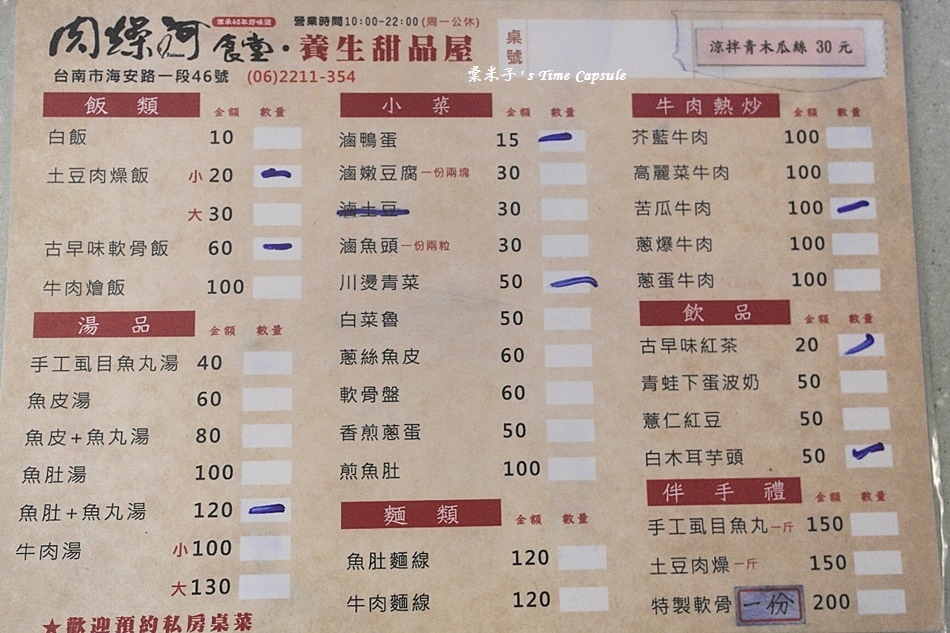 肉燥河食堂·養生甜品屋
傳承40年好味道
營業時間10:00-22:00(周一公休)
台南市海安路一段46號 (06)2211-354
桌號
涼拌青木瓜絲 30 元
粟米子's Time Capsule
飯類 金額 數量
白飯 10
土豆肉燥飯 小 20
大 30
古早味軟骨飯 60
牛肉燴飯 100
湯品 金額 數量
手工虱目魚丸湯 40
魚皮湯 60
魚皮+魚丸湯 80
魚肚湯 100
魚肚+魚丸湯 120
牛肉湯 小 100
大 130
★歡迎預約私房桌菜
小菜 金額 數量
滷鴨蛋 15
滷嫩豆腐一份兩塊 30
滷土豆 30
滷魚頭一份兩粒 30
川燙青菜 50
白菜魯 50
蔥絲魚皮 60
軟骨盤 60
香煎蔥蛋 50
煎魚肚 100
麵類 金額 數量
魚肚麵線 120
牛肉麵線 120
牛肉熱炒 金額 數量
芥藍牛肉 100
高麗菜牛肉 100
苦瓜牛肉 100
蔥爆牛肉 100
蔥蛋牛肉 100
飲品 金額 數量
古早味紅茶 20
青蛙下蛋波奶 50
薏仁紅豆 50
白木耳芋頭 50
伴手禮 金額 數量
手工虱目魚丸一斤 150
土豆肉燥一斤 150
特製軟骨 一份 200